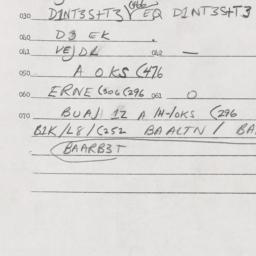 030 D1NT3S+T3 EQ D1NT3S+T3
040 D3 EK .
041 VEJDK 042 —
050 A OKS (476
060 ERNE (306 (296 061 O
070 BUAJ 12 A /H-/OKS (296
B1K/L8/(252 BAALTN / BA
BAARB3T